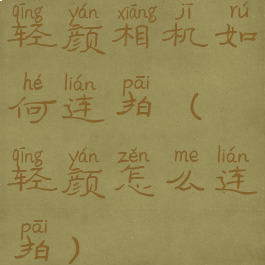 qīng yán xiāng jī rú
轻颜相机如
hé lián pāi
何连拍（
qīng yán zěn me lián
轻颜怎么连
pāi
拍）